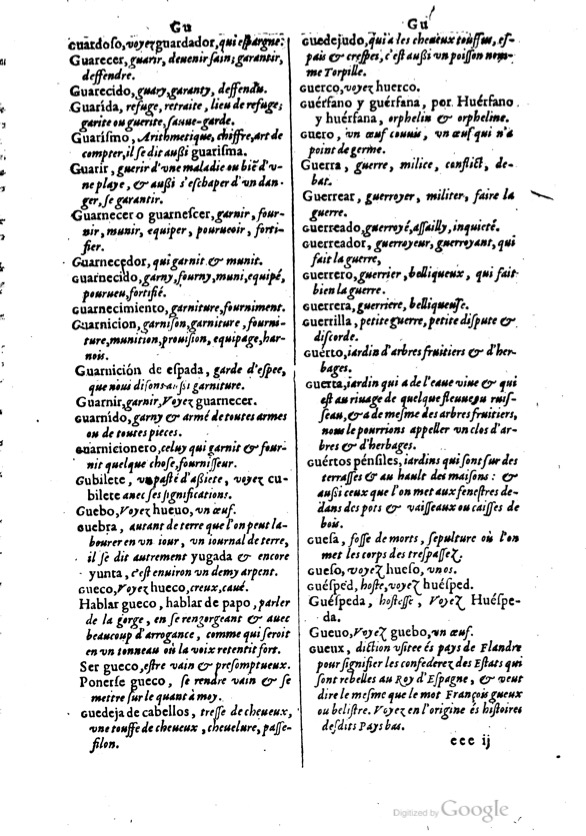 Gu
Guardoso, voyez guardador, qui espargne:
Guarecer, guarir, devenir sain; garantir,
deffendre.
Guarecido, guary, garanty, deffendu.
Guarida, refuge, retraite, lieu de refuge;
garite ou guerite, sauue-garde.
Guarismo, Arithmetique, chiffre, art de
compter, il se dit außi guarisma.
Guarir, guerir d'vne maladie ou bie d'v-
ne playe, & außi s'eschaper d'vn dan-
ger, se garantir.
Guarnecer o guarnescer, garnir, four-
nir, munir, equiper, pouruoir, forti-
fier.
Guarnecedor, qui garnit & munit.
Guarnecido, garny, fourny, muni, equipé,
pourueu, fortifié.
Guarnecimiento, garniture, fourniment.
Guarnicion, garnison, garniture, fourni-
ture, munition, prouision, equipage, har-
nois.
Guarnición de espada, garde d'espee,
que nous disons aussi garniture.
Guarnir, garnir, Voyez guarnecer.
Guarnido, garny & armé de toutes armes
ou de toutes pieces.
Guarnicionero, celuy qui garnit & four-
nit quelque chose, fournisseur.
Gubilete, vn pasté d'aßiete, voyez cu-
bilete auec ses significations.
Guebo, Voyez hueuo, vn œuf.
Guebra, autant de terre que l'on peut la-
bourer en vn iour, vn iournal de terre,
il se dit autrement yugada & encore
yunta, c'est enuiron vn demy arpent.
Gueco, Voyez hueco, creux, caué.
Hablar gueco, hablar de papo, parler
de la gorge, en se rengorgeant & auec
beaucoup d'arrogance, comme qui seroit
en vn tonneau ou la voix retentit fort.
Ser gueco, estre vain & presomptueux.
Ponerse gueco, se rendre vain & se
mettre sur le quant à moy.
Guedeja de cabellos, tresse de cheueux,
vne touffe de cheueux, cheuelure, passe-
filon.
Gu
Guedejudo, qui a les cheueux touffus, es-
pais & crespes, c'est außi vn poisson nom-
me Torpille.
Guerco, voyez huerco.
Guérfano y guérfana, por Huérfano
y huérfana, orphelin & orpheline.
Guero, vn œuf couuis, vn œuf qui n'a
point de germe.
Guerra, guerre, milice, conflict, de-
bat.
Guerrear, guerroyer, militer, faire la
guerre.
Guerreado, guerroyé, assailly, inquieté.
Guerreador, guerroyeur, guerroyant, qui
fait la guerre,
Guerrero, guerrier, belliqueux, qui fait
bien la guerre.
Guerrera, guerriere, belliqueuse.
Guerrilla, petite guerre, petite dispute &
discorde.
Guerto, iardin d'arbres fruitiers & d'her-
bages.
Guerta, iardin qui a de l'eaue viue & qui
est au riuage de quelque fleuue ou ruis-
seau, & a de mesme des arbres fruitiers,
nous le pourrions appeller vn clos d'ar-
bres & d'herbages.
Guértos pénsiles, iardins qui sont sur des
terrasses & au hault des maisons: &
außi ceux que l'on met aux fenestres de-
dans des pots & vaisseaux ou caisses de
bois.
Guesa, fosse de morts, sepulture où l'on
met les corps des trespassez.
Gueso, voyez hueso, vn os.
Guésped, hoste, voyez huésped.
Guéspeda, hostesse, Voyez Huéspe-
da.
Gueuo, Voyez guebo, vn œuf.
Gueux, diction vsitee és pays de Flandre
pour signifier les confederez des Estats qui
sont rebelles au Roy d'Espagne, & veut
dire le mesme que le mot François gueux
ou belistre. Voyez en l'origine és histoires
desdits Pays bas.
eee ij
Digitized by Google